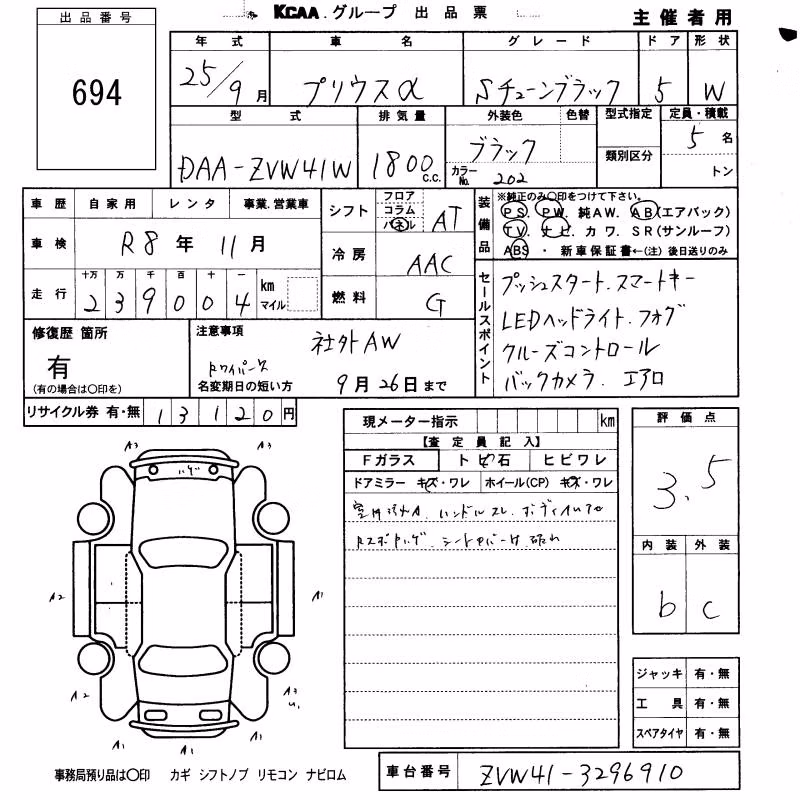 KCAA.グループ 出品票
主催者用
出品番号
694
年式 車名 グレード ドア 形状
25/9月 プリウスα Sチューンブラック 5 W
型式 排気量 外装色 色替 型式指定 定員・積載
DAA-ZVW41W 1800c.c. ブラック 5名
類別区分
カラーNo. 202 トン
車歴 自家用 レンタ 事業.営業車
車検 R8年 11月
走行 十万 万 千 百 十 一
2 3 9 0 0 4 km マイル
シフト フロア コラム パネル AT
冷房 AAC
燃料 G
装備品 ※純正のみ〇印をつけて下さい。
PS. PW. 純AW. AB(エアバック)
TV. ナビ. カワ. SR(サンルーフ)
ABS・新車保証書←(注)後日送りのみ
セールスポイント
プッシュスタート.スマートキー
LEDヘッドライト.フォグ
クルーズコントロール
バックカメラ.エアロ
修復歴 箇所
有
(有の場合は〇印を)
注意事項 社外AW
名変期日の短い方 9月26日まで
リサイクル券 有・無 13120円
現メーター指示 km
【査定員記入】
Fガラス トビ石 ヒビワレ
ドアミラー キズ・ワレ ホイール(CP) キズ・ワレ
ハンドルスレ.
評価点
3.5
内装 外装
b c
A3 A3
A2 A1
A2 A3
U1
A1 A1
ジャッキ 有・無
工具 有・無
スペアタイヤ 有・無
事務局預り品は〇印 カギ シフトノブ リモコン ナビロム
車台番号 ZVW41-3296910